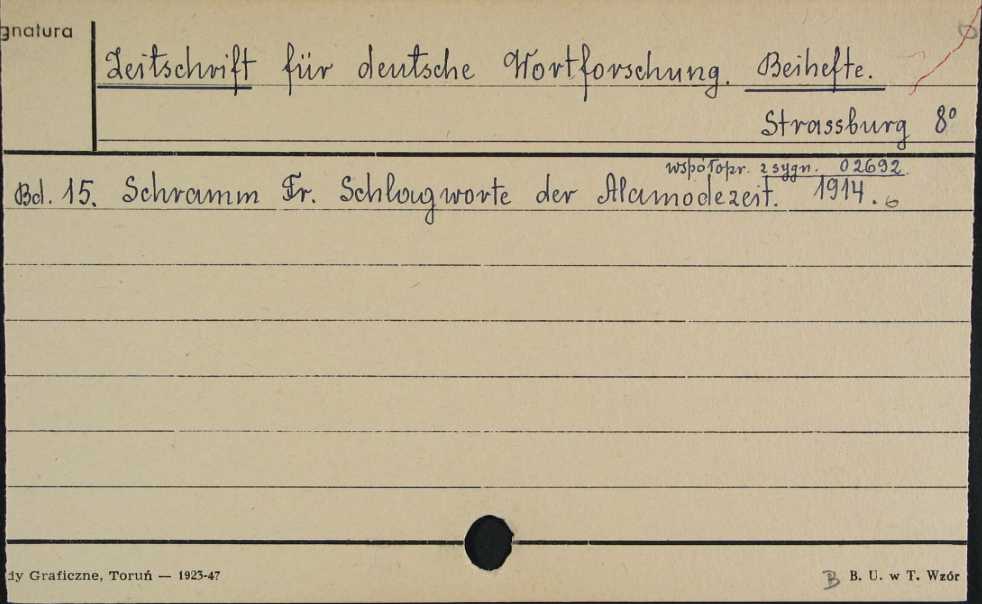 gnatura
Zeitschrift für deutsche Wortforschung. Beihefte.
Strassburg 8°
współopr. z sygn. 02692.
Bd. 15. Schramm Fr. Schlagworte der Alamodezeit. 1914.
dy Graficzne, Toruń — 1923-47
B B. U. w T. Wzór